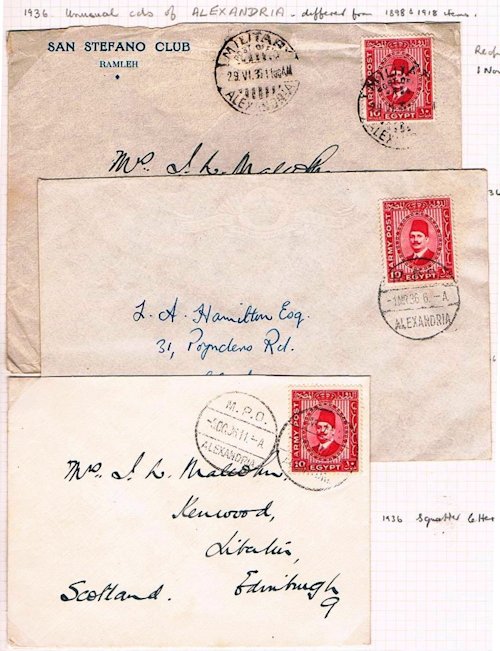 1936. Unusual cds of ALEXANDRIA - different from 1898 & 1918 items.
SAN STEFANO CLUB
RAMLEH
MILITARY
POST OFFICE
29.VI.36 11
AM
ALEXANDRIA
ARMY POST
10 EGYPT
Mrs. I. L. Malcolm
ARMY POST
10 EGYPT
ALEXANDRIA
L. A. Hamilton Esq.
31, Poynders Rd.
M.P.O.
ALEXANDRIA
ARMY POST
10 EGYPT
Mrs. I. L. Malcolm,
Kenwood,
Liberton,
Edinburgh
9
Scotland.
1936 Squatter letter